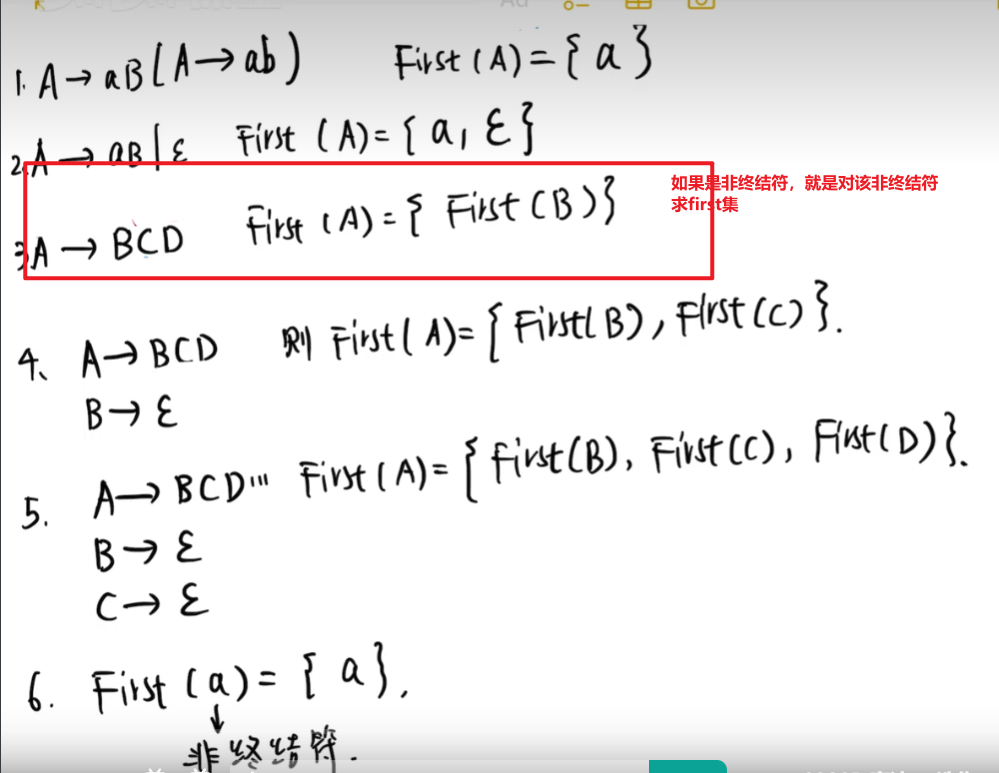 1. A→aB(A→ab) First(A)={a}
2. A→aB|ε First(A)={a,ε}
3. A→BCD First(A)={First(B)}
如果是非终结符，就是对该非终结符
求first集
4、 A→BCD 则 First(A)={First(B),First(C)}.
B→ε
5. A→BCD… First(A)={First(B),First(C),First(D)}.
B→ε
C→ε
6. First(a)={a}.
↓
非终结符.